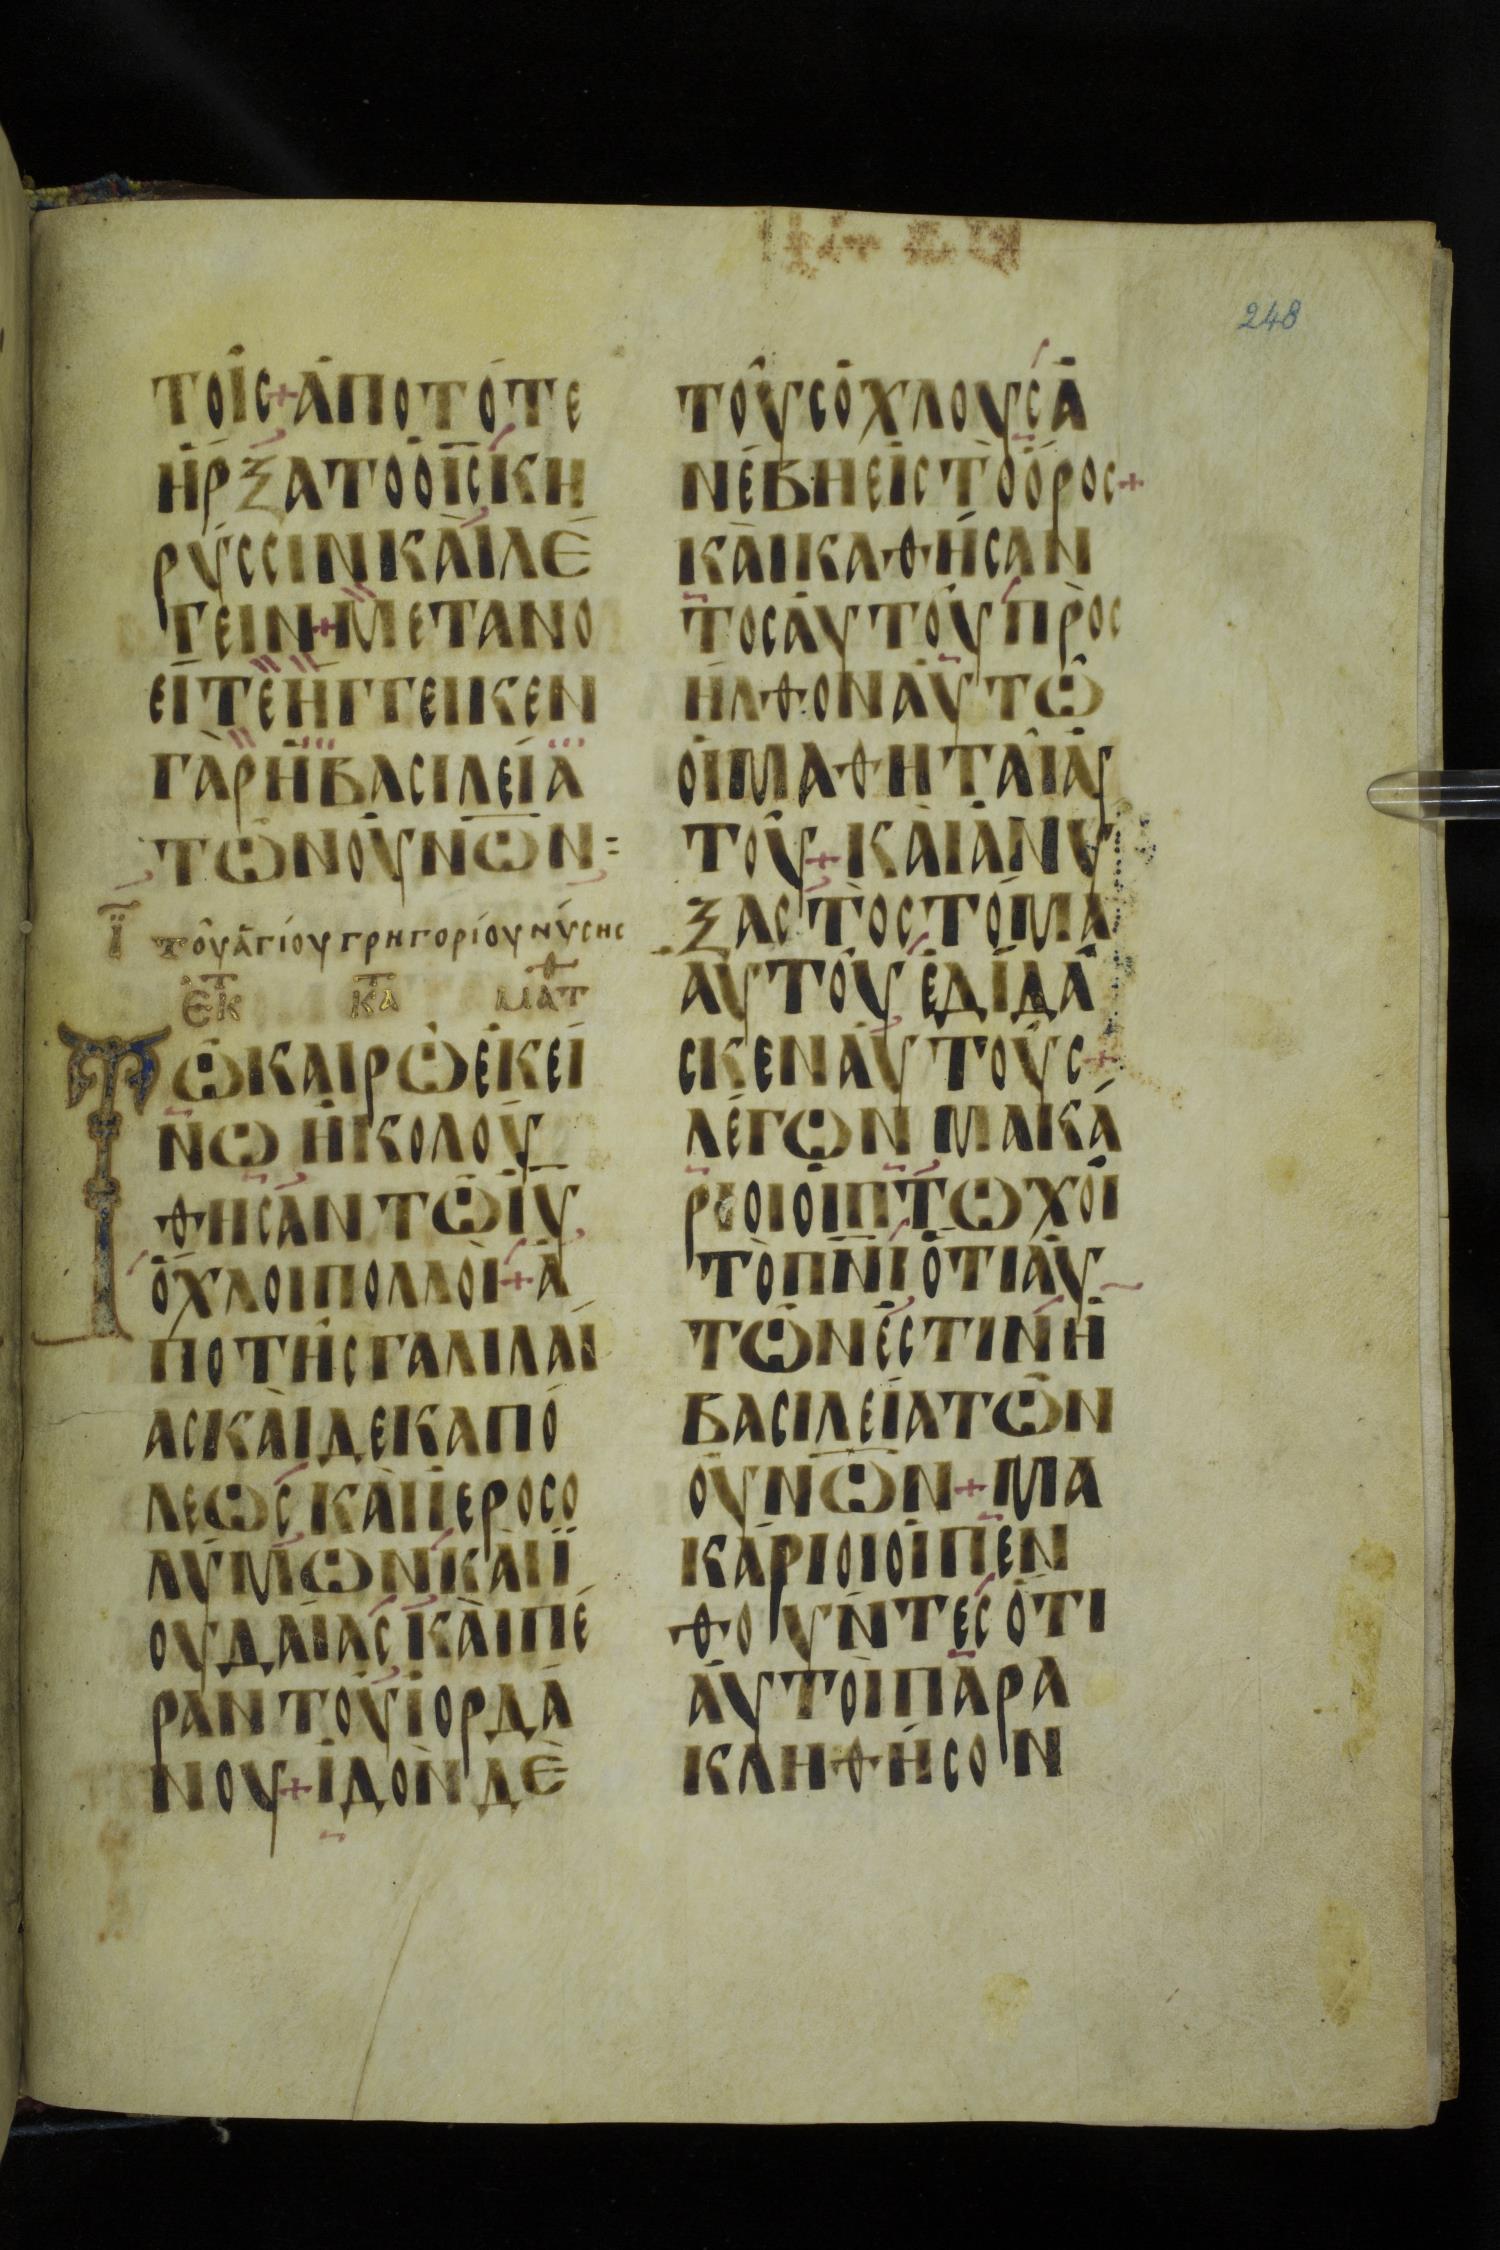 248
ΤΟΙ͂Ϲ+ἈΠΟΤΌΤΕ
ἨΡΞΑΤΟΟΙ̅Ϲ̅ΚΗ
ΡΎϹϹΙΝΚΑῚΛΈ
ΓΕΙΝ+ΜΕΤΑΝΟ
ΕΙ͂ΤΕἨΓΓΕΙΚΕΝ
ΓᾺΡἩΒΑϹΙΛΕΊΑ
ΤΩ͂ΝΟΥ̓Ν̅Ω̅Ν:
Ϊ ΤΟΥ͂ἉΓΊΟΥΓΡΗΓΟΡΊΟΥΝΎϹΗϹ
ἘΚ ΚΑ ΜΑΤΘ
ΤΩ͂ΚΑΙΡΩ͂ἘΚΕΊ
ΝΩἨΚΟΛΟΎ
ΘΗϹΑΝΤΩ͂Ι̅Υ̅
ὌΧΛΟΙΠΟΛΛΟῚ+Ἀ
ΠΟΤΗ͂ϹΓΑΛΙΛΑΊ
ΑϹΚΑῚΔΕΚΑΠΌ
ΛΕΩϹΚΑῚΪΕΡΟϹΟ
ΛΎΜΩΝΚΑῚΪ
ΟΥΔΑΊΑϹΚΑῚΠΈ
ΡΑΝΤΟΥ͂ΙΟΡΔΆ
ΝΟΥ+ἸΔΟῺΝΔῈ
ΤΟῪϹὌΧΛΟΥϹἈ
ΝΈΒΗΕἸϹΤῸὌΡΟϹ+
ΚΑῚΚΑΘΉϹΑΝ
ΤΟϹΑΥ̓ΤΟΥ͂ΠΡΟϹ
ΗΛΘΟΝΑΥ̓ΤΩ͂
ΟἹΜΑΘΗΤΑῚΑΥ̓
ΤΟΥ͂+ΚΑῚἈΝΥ
ΞΑϹΤῸϹΤΌΜΑ
ΑΥΤΟΥ͂ἘΔΊΔΑ
ϹΚΕΝΑΥ̓ΤΟΎϹ+
ΛΈΓΩΝΜΑΚΆ
ΡΙΟΙΟἹΠΤΩΧΟῚ
ΤῸΠ̅Ν̅Ι̅ὍΤΙΑΥ̓
ΤΩ͂ΝἘϹΤΙΝἩ
ΒΑϹΙΛΕΊΑΤΩ͂Ν
ΟΥ̓Ν̅Ω̅Ν+ΜΑ
ΚΆΡΙΟΙΟἹΠΕΝ
ΘΟΥΝΤΕϹὍΤΙ
ΑΥ̓ΤΟῚΠΑΡΑ
ΚΛΗΘΉϹΟΝ